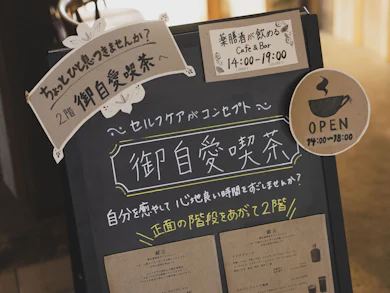 ちょっとひと息つきませんか?
2階 御自愛喫茶へ
薬膳酒が飲める
Cafe & Bar
14:00-19:00
OPEN
14:00~18:00
～セルフケアがコンセプト～
御自愛喫茶
自分を癒やして心地良い時間をすごしませんか?
正面の階段をあがって2階